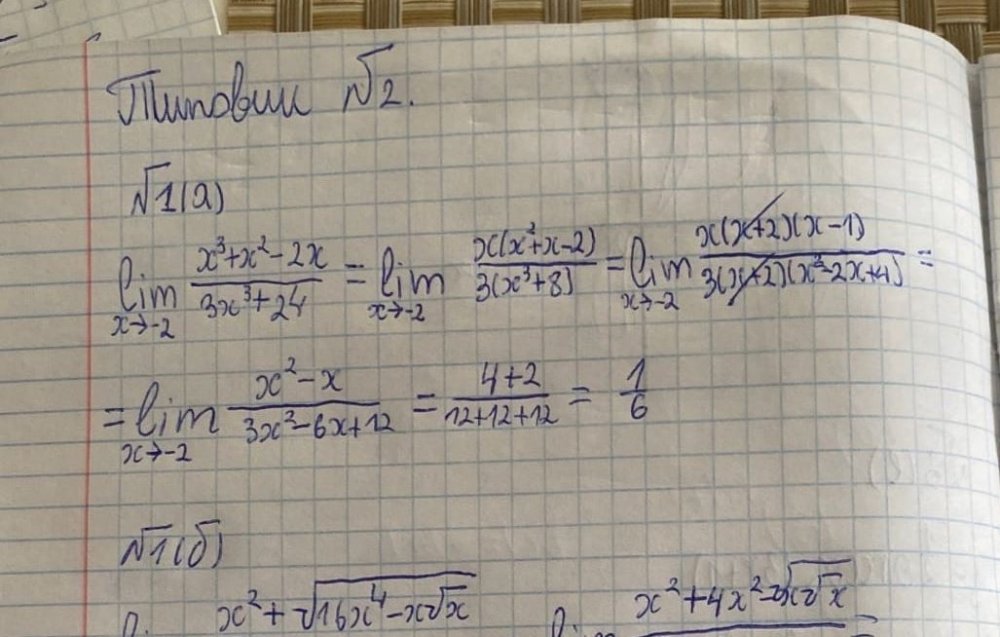 Типовик №2.
№1(а)
lim x→-2 (x³+x²-2x)/(3x³+24) = lim x→-2 (x(x²+x-2))/(3(x³+8)) = lim x→-2 (x(x+2)(x-1))/(3(x+2)(x²-2x+4)) =
= lim x→-2 (x²-x)/(3x²-6x+12) = (4+2)/(12+12+12) = 1/6
№1(б)
x²+√(16x⁴-x√x)